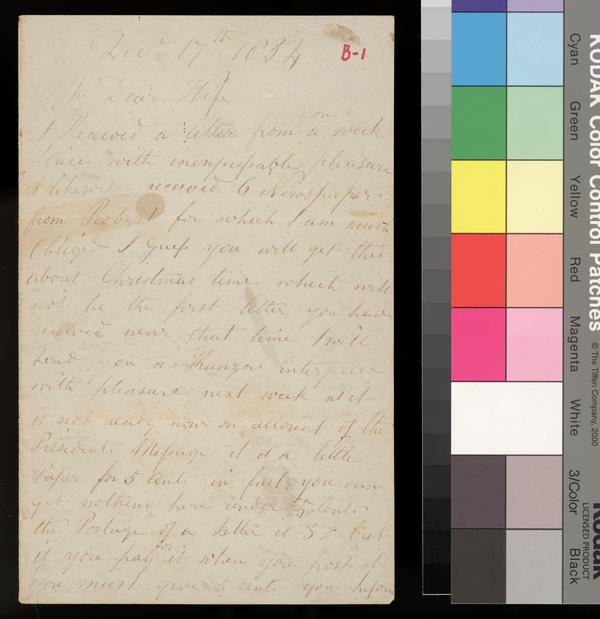 Decr 17th 1854
B-1
My Dear Wife
I Received a letter from you a week
since with inexpressable pleasure
I likewise received 6 Newspapers
from Robert for which I am much
Obliged I guess you will get this
about Christmas time which will
not be the first letter you have
received near that time I will
send you a Enterprise
with pleasure next week as it
is not ready now on account of the
Presidents Message it is a little
Paper for 5 cents in fact you can
get nothing here under 5 cents
the Postage of a Letter is 3 c but
if you pay for it when you post it
you must give 5 cents you
KODAK Color Control Patches
© The Tiffen Company, 2000
Kodak
LICENSED PRODUCT
Cyan
Green
Yellow
Red
Magenta
White
3/Color
Black